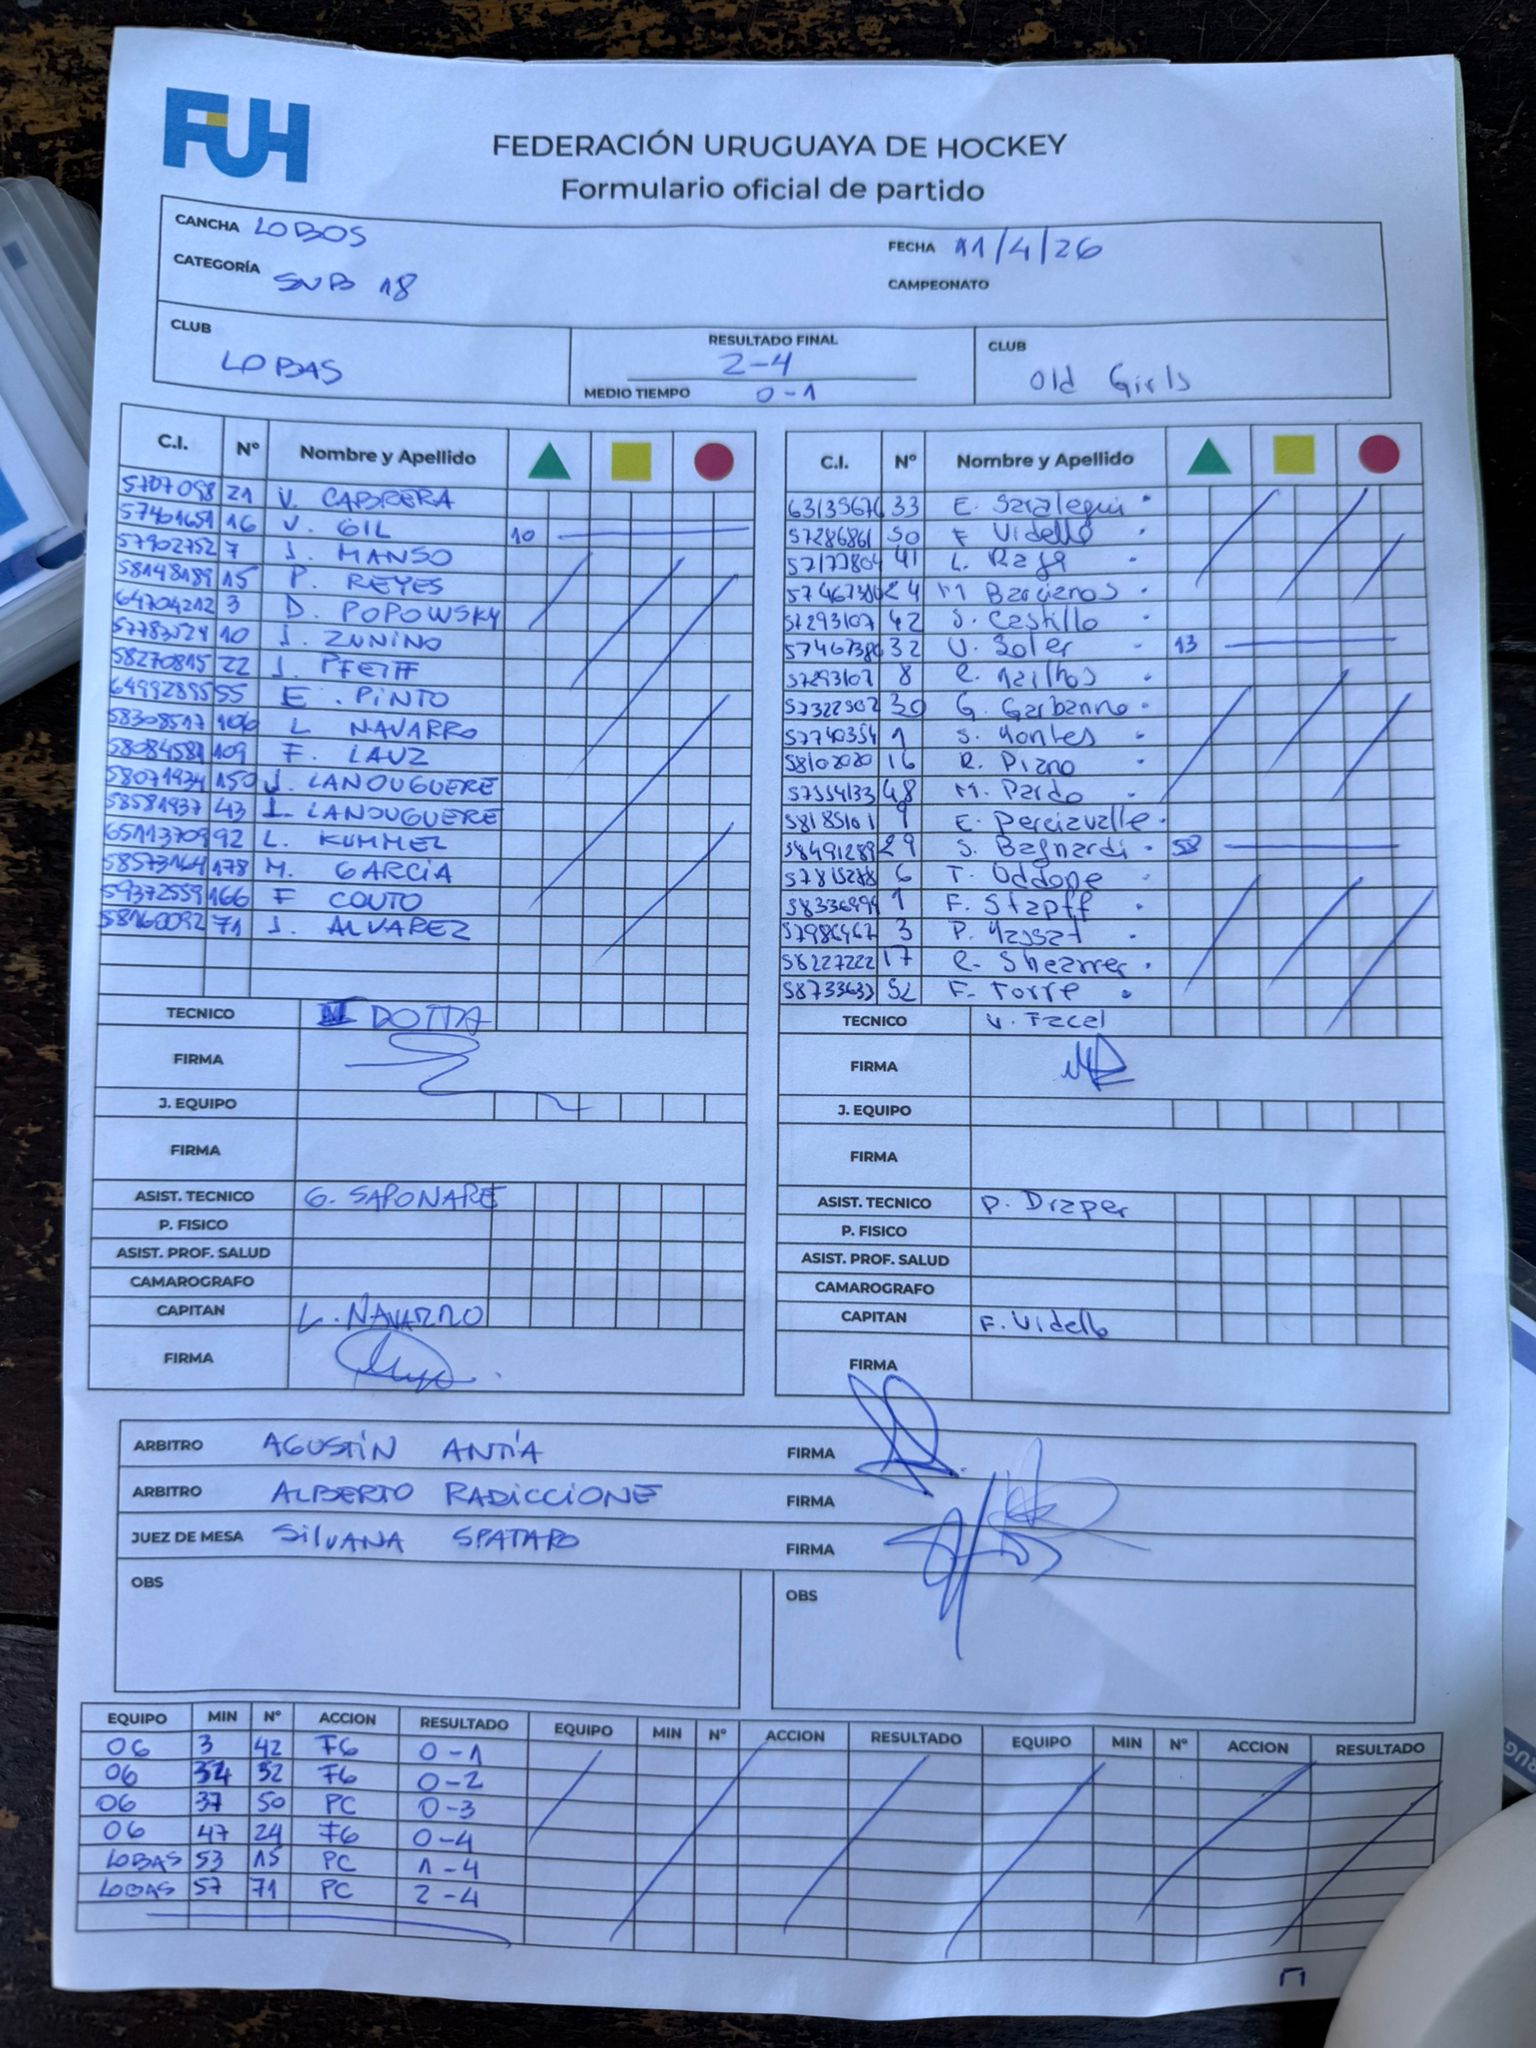 FUH
FEDERACIÓN URUGUAYA DE HOCKEY
Formulario oficial de partido
CANCHA LOBOS FECHA 11/4/26
CATEGORÍA SUB 18 CAMPEONATO
CLUB LOBAS RESULTADO FINAL 2-4 CLUB Old Girls
MEDIO TIEMPO 0-1
C.I. Nº Nombre y Apellido
5707098 21 V. CABRERA
57401651 16 V. GIL 10
57902752 7 J. MANSO
58148189 15 P. REYES
64704212 3 D. POPOWSKY
10 J. ZUNINO
58270815 22 J. PFEIFF
64992895 55 E. PINTO
58308517 106 L NAVARRO
58084581 109 F. LAUZ
58071934 150 J. LANOUGUERE
58581937 43 L. LANOUGUERE
65113709 92 L. KUMMEL
58573164 178 M. GARCIA
59372559 166 F COUTO
58160092 71 J. ALVAREZ
TECNICO DOTTA
FIRMA
J. EQUIPO
FIRMA
ASIST. TECNICO G. SAPONARE
P. FISICO
ASIST. PROF. SALUD
CAMAROGRAFO
CAPITAN L. NAVARRO
FIRMA
C.I. Nº Nombre y Apellido
63135676 33 E. Saralegui
57286861 50 F Vidello
57177804 41 L. Raga
24 M Barcianos
57293107 42 S. Castillo
57467386 32 V. Soler 13
57293107 8 C.
57322502 30 G. Garbanno
57740354 1 S. Montes
58102020 16 R. Piano
57554133 48 M. Pardo
58185101 9 E. Perciavalle
58491289 29 S. Bagnardi 58
6 T. Oddone
58336999 1 F. Stapff
57986467 3 P.
58227222 17 C. Shearer
58733633 52 F. Torre
TECNICO V. Facal
FIRMA
J. EQUIPO
FIRMA
ASIST. TECNICO P. Draper
P. FISICO
ASIST. PROF. SALUD
CAMAROGRAFO
CAPITAN F. Vidello
FIRMA
ARBITRO AGUSTÍN ANTÍA FIRMA
ARBITRO ALBERTO RADICCIONE FIRMA
JUEZ DE MESA SILVANA SPATARO FIRMA
OBS OBS
EQUIPO MIN Nº ACCION RESULTADO EQUIPO MIN Nº ACCION RESULTADO EQUIPO MIN Nº ACCION RESULTADO
OG 3 42 FG 0-1
OG 34 32 FG 0-2
OG 37 50 PC 0-3
OG 47 24 FG 0-4
LOBAS 53 15 PC 1-4
LOBAS 57 71 PC 2-4